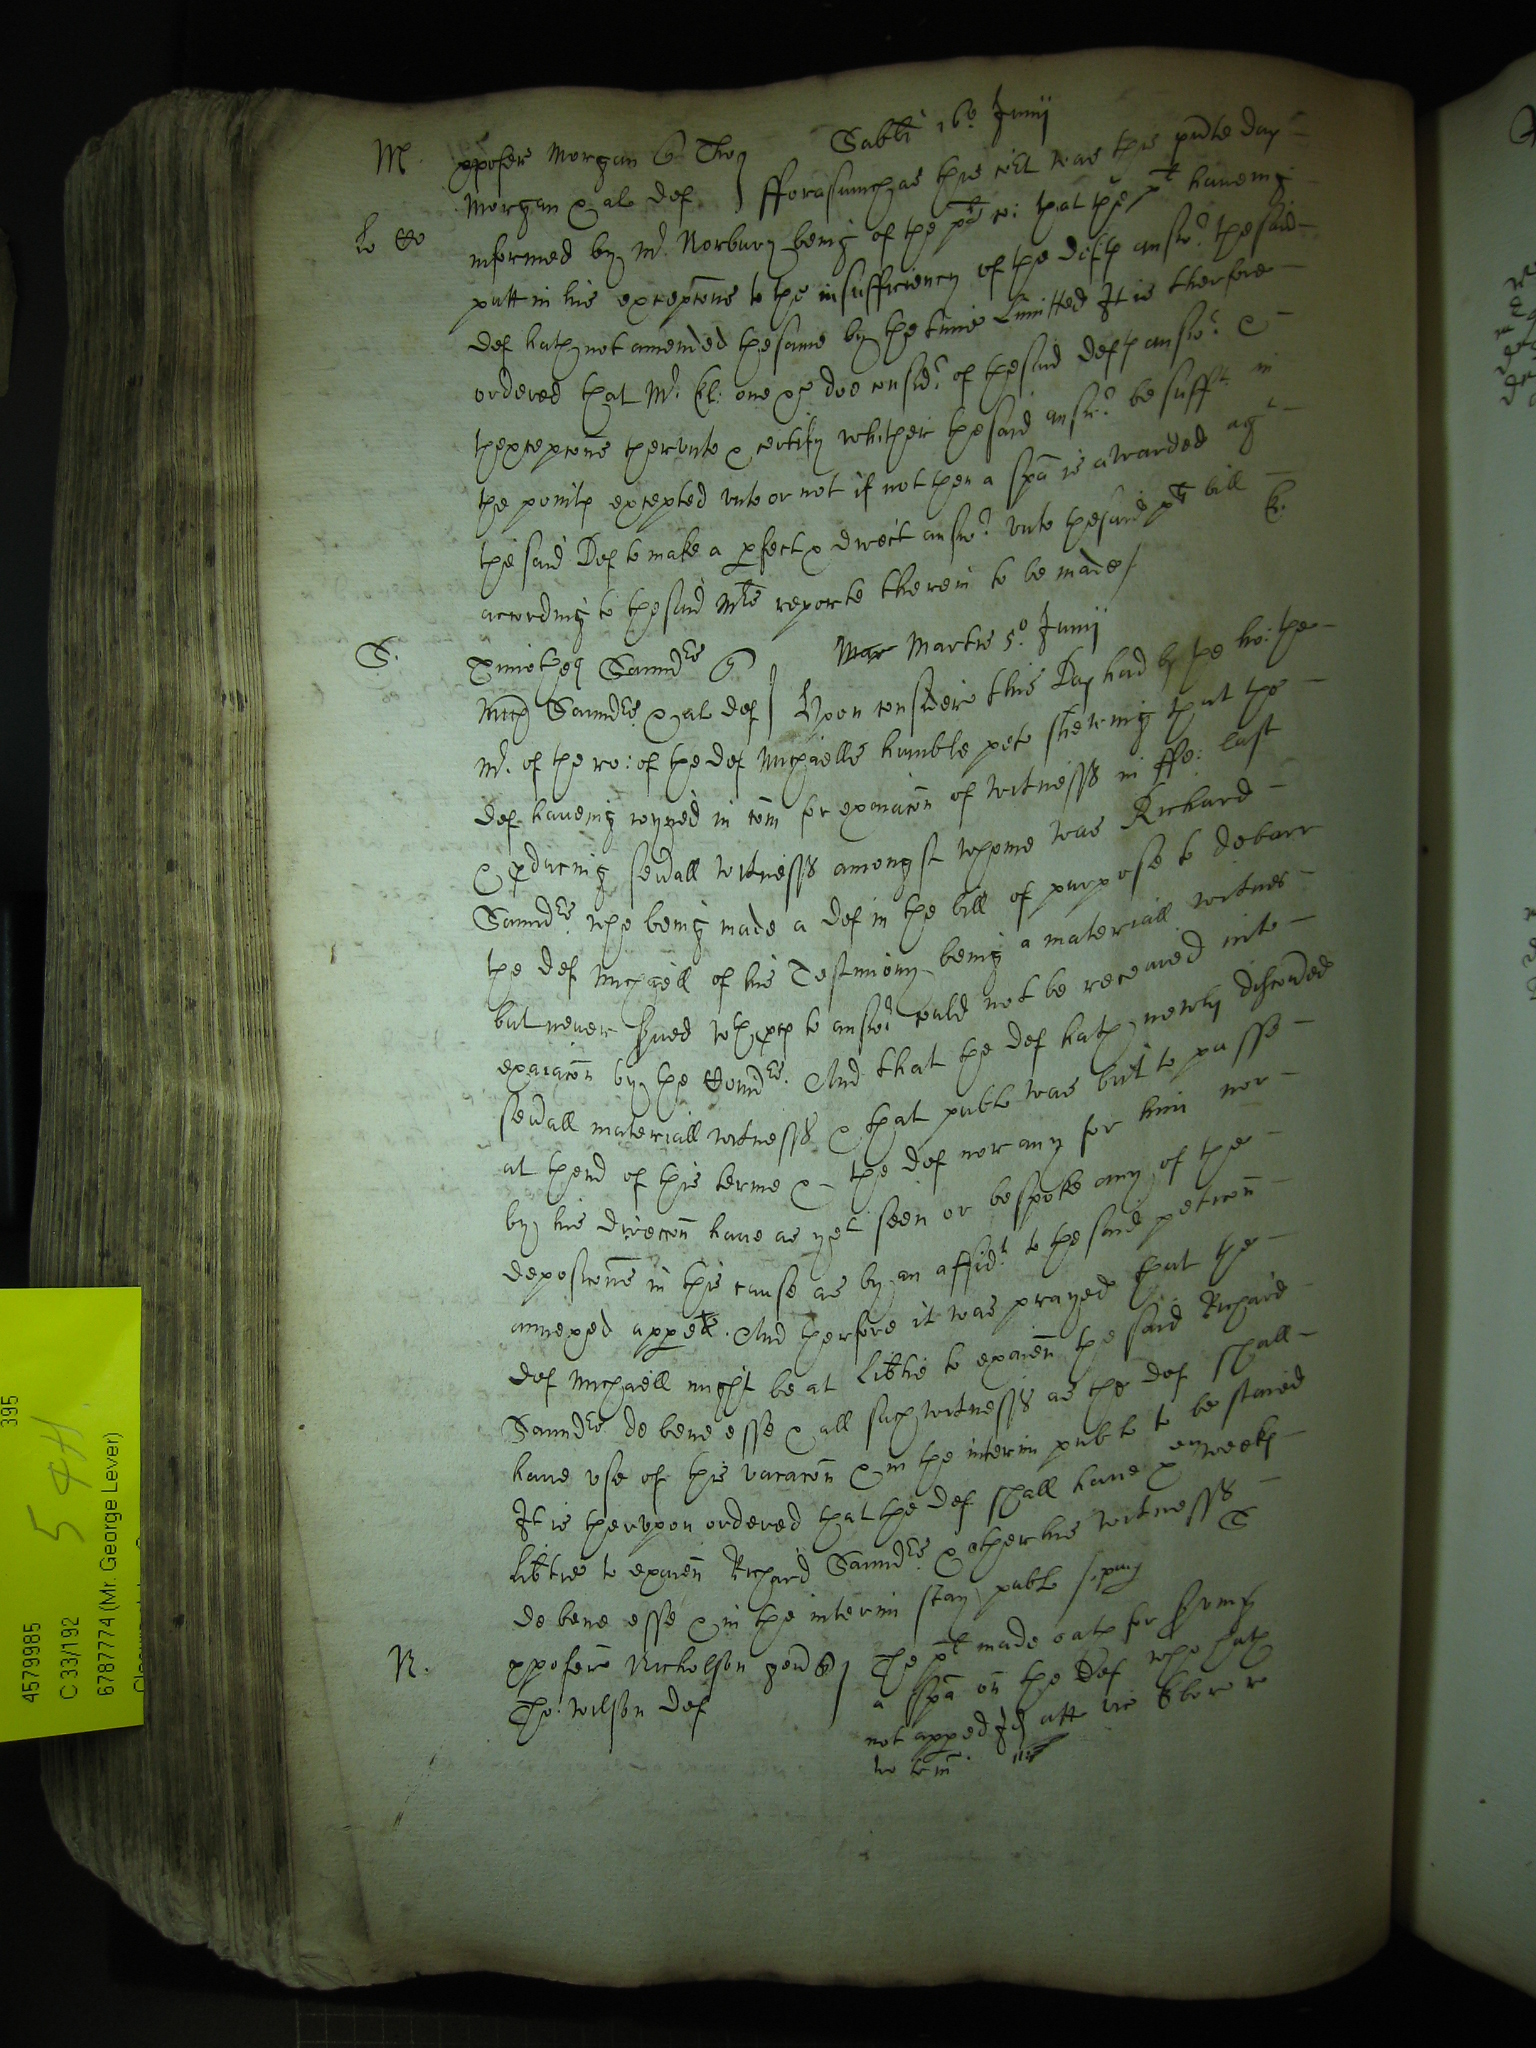 Sabbti 16o Junij
M. xpofer Morgan q Tho
Morgan & al def fforasmuch as this co'rt was this p'nte day
lo Co informed by Mr. Norbury being of the plt co: that the plt haveing
putt in his excepc'ons to the insufficiency of the deftes answr. the said
def hath not amended the same by the time limitted It is therfore
ordered that Mr. of one &c doe consider of the said deftes answr. &
thexcepc'ons therunto & certify whither the said answr. be sufft. in
the pointes excepted unto or not if not then a spa is awarded agt
the said Def to make a perfect & direct answr. unto the said plts bill
according to the said Mrs reporte therein to be made
S. Timothey Saundrs q
Mar Martis 5o Junij
Mich Saundrs & al def Upon consider' this Day had by the ho: the
Mr. of the ro: of the def Michaells humble peto shewing that the
def haveing joyned in com for exaiac'on of witnesses in ffe: last
& p'ducing sev'all witnesses amongst whome was Richard
Saundrs who being made a def in the bill of purpose to debarr
the def Michaell of his Testimony being a materiall witnes
but never s'ved wth p'ces to answr could not be receaved into
exaiac'on by the Com'rs. And that the def hath newly discov'ed
sev'all materiall witnesses & that publ was but to passe
at thend of this terme & the def nor any for him nor
by his direcc'on have as yet seen or bespoke any of the
deposic'ons in this cause as by an affidt. to the said petic'on
annexed appeth. And therfore it was prayed that the
def Michaell might be at lib'tie to exaien the said Richard
Saundrs de bene esse & all such witnesses as the def shall
have use of this vacac'on & in the interim publ to be staied
It is therupon ordered that the def shall have xen weekes
lib'tie to exaien Richard Saundrs & other his witnesses
de bene esse & in the interim stay publ
N. xpofer Nicholson gen q The plt made oath for s'ving
Tho: Wilson def a spa on the Def who hath
not apped Id att vic
4579985
395
C 33/192
5 4H
6787774 (Mr. George Lever)